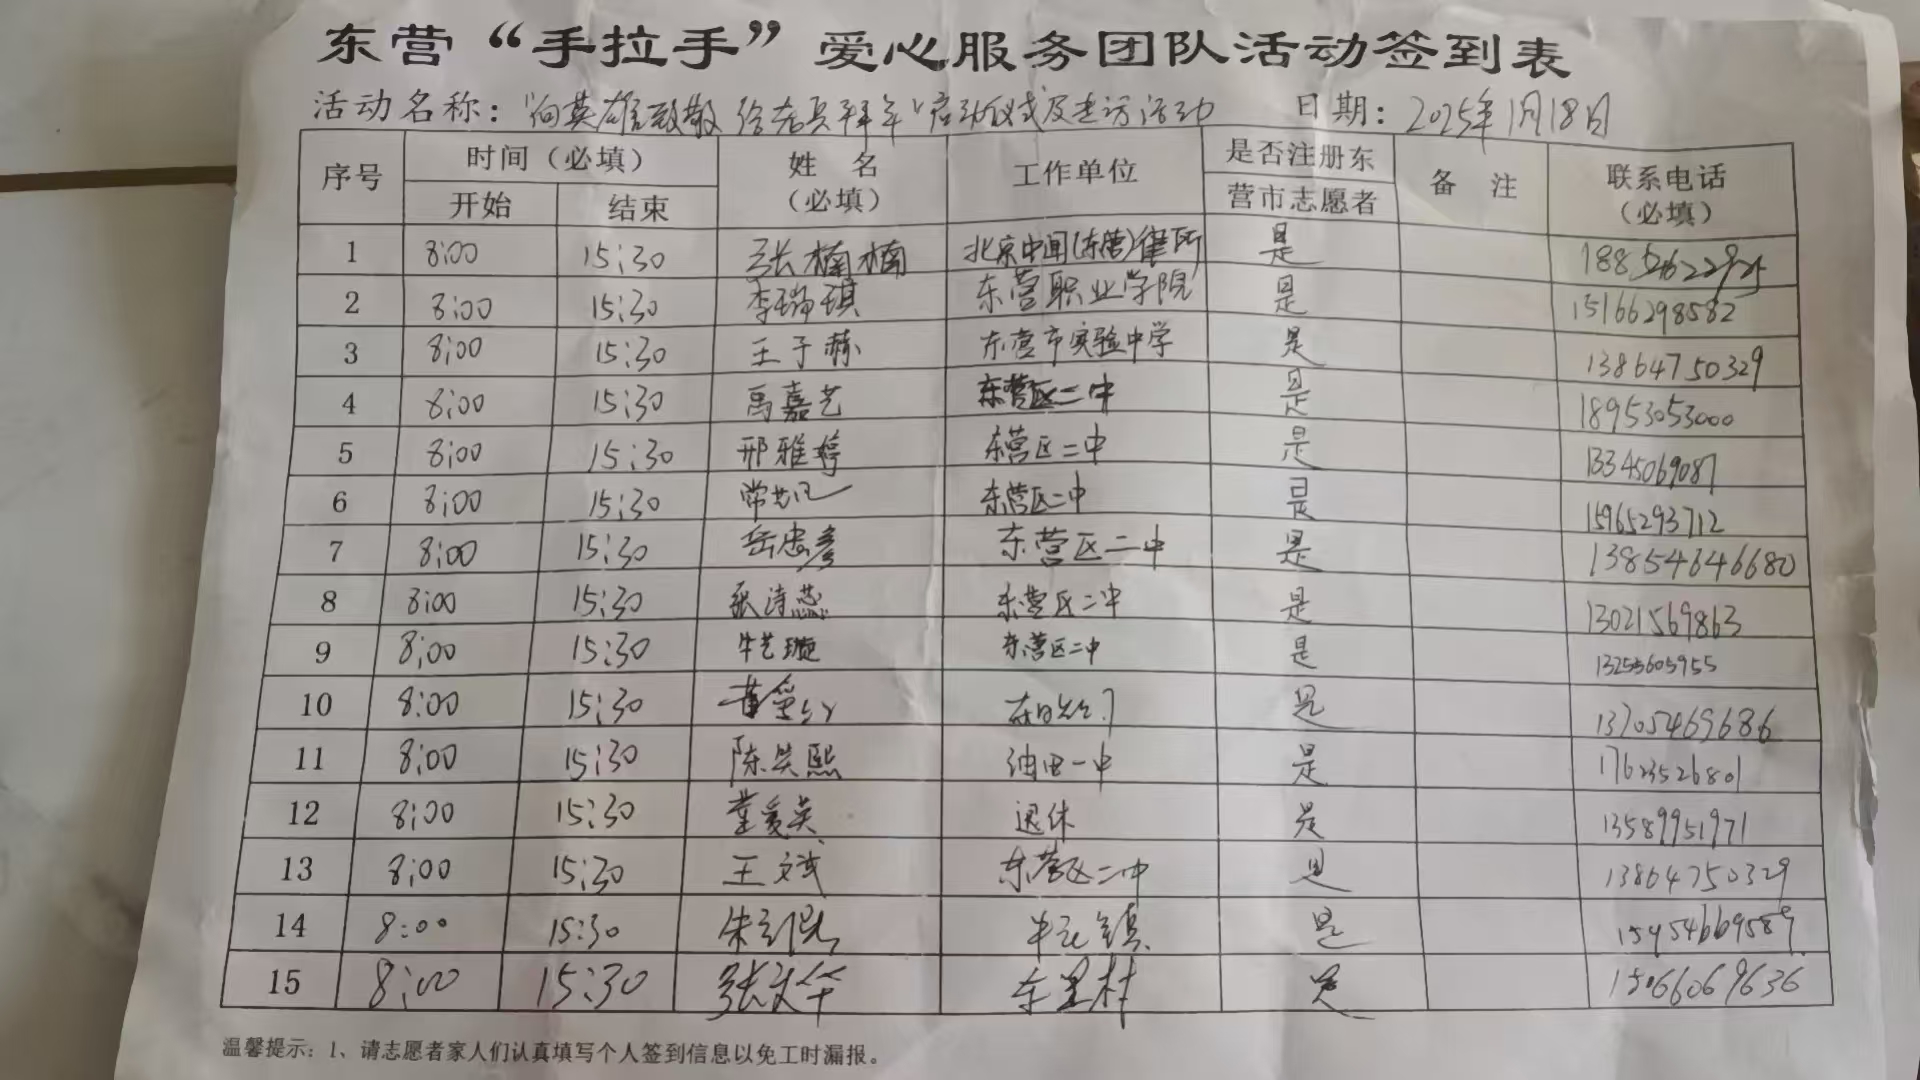 东营“手拉手”爱心服务团队活动签到表
活动名称：“向英雄致敬 给老兵拜年”启动仪式及走访活动 日期：2025年1月18日
序号 时间（必填） 姓 名（必填） 工作单位 是否注册东营市志愿者 备 注 联系电话（必填）
开始 结束
1 8:00 15:30 张楠楠 北京中闻(东营)律所 是
2 8:00 15:30 李瑞琪 东营职业学院 是 15166298582
3 8:00 15:30 王子赫 东营市实验中学 是 13864750329
4 8:00 15:30 禹嘉艺 东营区二中 是 18953053000
5 8:00 15:30 邢雅婷 东营区二中 是 13345069087
6 8:00 15:30 常艺凡 东营区二中 是 15965293712
7 8:00 15:30 岳忠彦 东营区二中 是 13854646680
8 8:00 15:30 张诗蕊 东营区二中 是 13021569863
9 8:00 15:30 牛艺璇 东营区二中 是 13255605955
10 8:00 15:30 是 13705469686
11 8:00 15:30 陈昊熙 油田一中 是 17623526801
12 8:00 15:30 董爱英 退休 是 13589951971
13 8:00 15:30 王文斌 东营区二中 是 13864750329
14 8:00 15:30 牛庄镇 是 15954669589
15 8:00 15:30 张文华 是 15066069636
温馨提示：1、请志愿者家人们认真填写个人签到信息以免工时漏报。